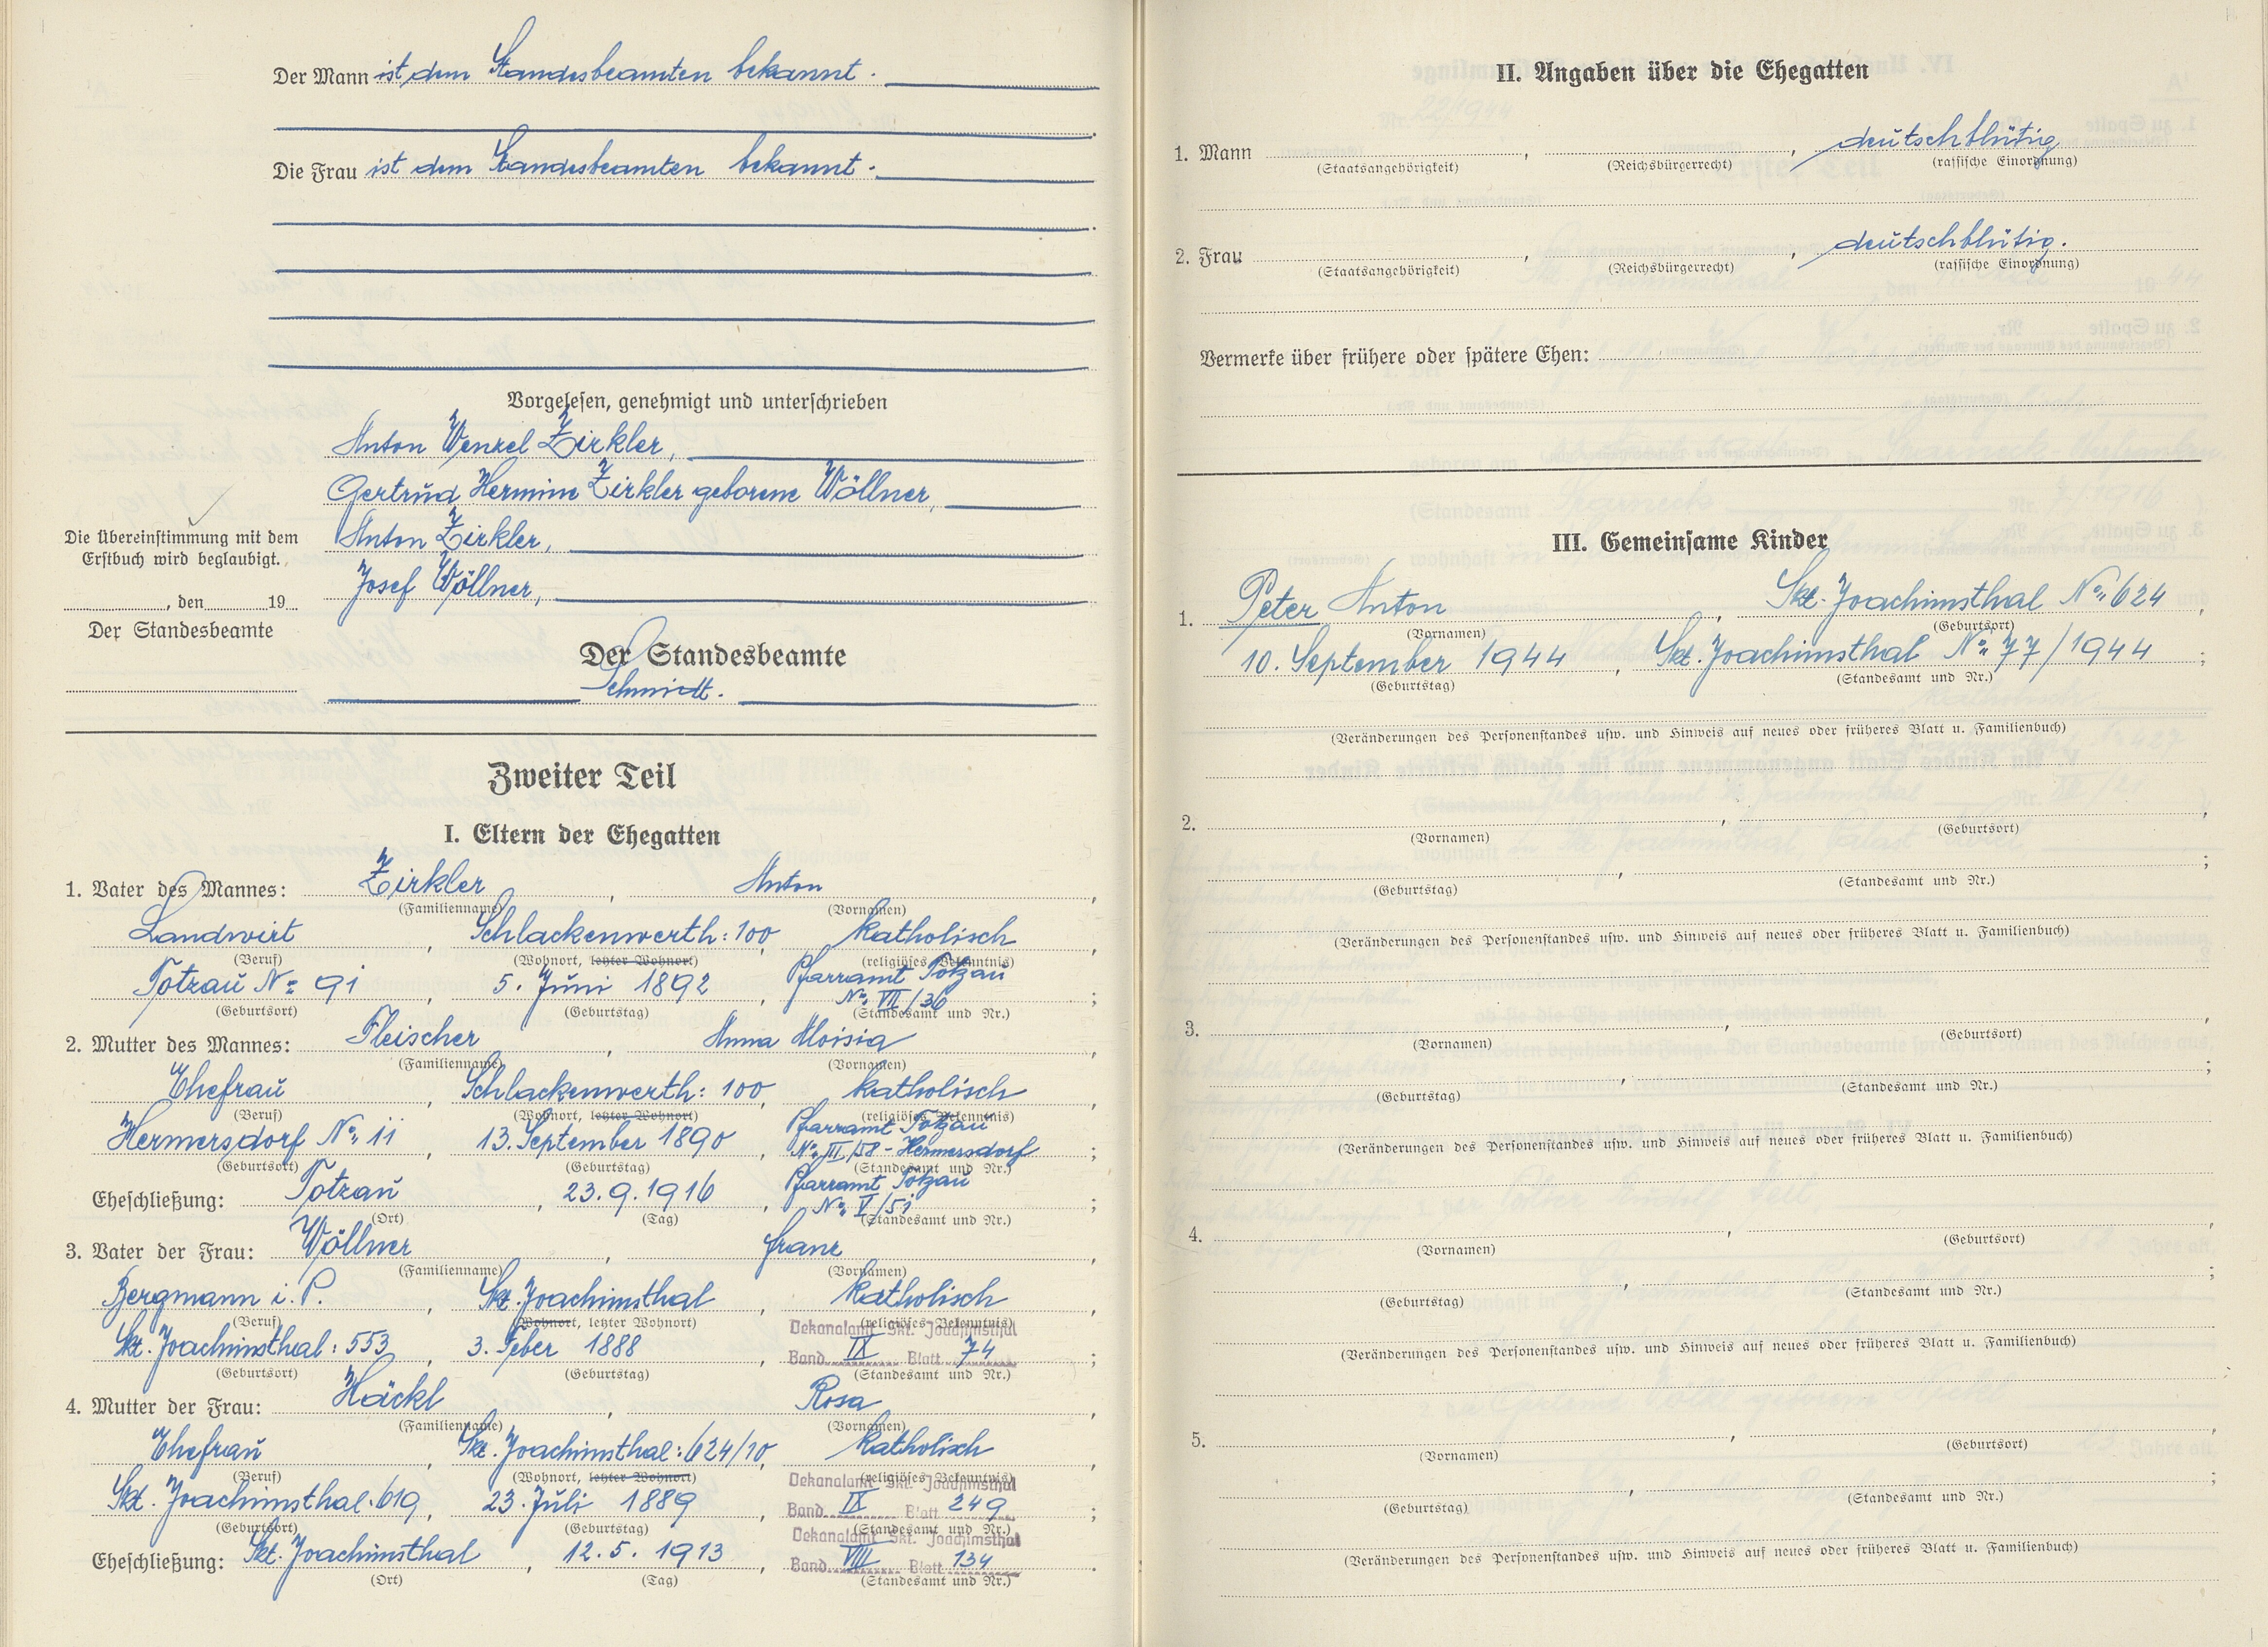 Der Mann ist dem Standesbeamten bekannt.
Die Frau ist dem Standesbeamten bekannt.
Vorgelesen, genehmigt und unterschrieben
Anton Wenzel Zirkler,
Gertrud Hermine Zirkler geborene Wöllner,
Anton Zirkler,
Josef Wöllner,
Die Übereinstimmung mit dem
Erstbuch wird beglaubigt.
, den 19
Der Standesbeamte
Der Standesbeamte
Schmidt.
Zweiter Teil
I. Eltern der Ehegatten
1. Vater des Mannes: Zirkler, Anton,
(Familienname) (Vornamen)
Landwirt, Schlackenwerth: 100, katholisch,
(Beruf) (Wohnort, letzter Wohnort) (religiöses Bekenntnis)
Totzau No 91, 5. Juni 1892, Pfarramt Totzau No. VII/36;
(Geburtsort) (Geburtstag) (Standesamt und Nr.)
2. Mutter des Mannes: Fleischer, Anna Aloisia,
(Familienname) (Vornamen)
Ehefrau, Schlackenwerth: 100, katholisch,
(Beruf) (Wohnort, letzter Wohnort) (religiöses Bekenntnis)
Hermersdorf No. 11, 13. September 1890, Pfarramt Totzau No. III/58 - Hermersdorf;
(Geburtsort) (Geburtstag) (Standesamt und Nr.)
Eheschließung: Totzau, 23.9.1916, Pfarramt Totzau No. V/51;
(Ort) (Tag) (Standesamt und Nr.)
3. Vater der Frau: Wöllner, Franz
(Familienname) (Vornamen)
Bergmann i. P., Skt. Joachimsthal, katholisch,
(Beruf) (Wohnort, letzter Wohnort) (religiöses Bekenntnis)
Skt. Joachimsthal: 553, 3. Feber 1888, Dekanalamt Skt. Joachimsthal Band IX Blatt 74;
(Geburtsort) (Geburtstag) (Standesamt und Nr.)
4. Mutter der Frau: Häckl, Rosa,
(Familienname) (Vornamen)
Ehefrau, Skt. Joachimsthal: 624/10, katholisch,
(Beruf) (Wohnort, letzter Wohnort) (religiöses Bekenntnis)
Skt. Joachimsthal: 619, 23. Juli 1889, Dekanalamt Skt. Joachimsthal Band IX Blatt 249;
(Geburtsort) (Geburtstag) (Standesamt und Nr.)
Eheschließung: Skt. Joachimsthal, 12.5.1913, Dekanalamt Skt. Joachimsthal Band VIII Blatt 134.
(Ort) (Tag) (Standesamt und Nr.)
II. Angaben über die Ehegatten
1. Mann , , deutschblütig
(Staatsangehörigkeit) (Reichsbürgerrecht) (rassische Einordnung)
2. Frau , , deutschblütig.
(Staatsangehörigkeit) (Reichsbürgerrecht) (rassische Einordnung)
Vermerke über frühere oder spätere Ehen:
III. Gemeinsame Kinder
1. Peter Anton, Skt. Joachimsthal No. 624,
(Vornamen) (Geburtsort)
10. September 1944, Skt. Joachimsthal No. 77/1944;
(Geburtstag) (Standesamt und Nr.)
(Veränderungen des Personenstandes usw. und Hinweis auf neues oder früheres Blatt u. Familienbuch)
2. , ,
(Vornamen) (Geburtsort)
, ;
(Geburtstag) (Standesamt und Nr.)
(Veränderungen des Personenstandes usw. und Hinweis auf neues oder früheres Blatt u. Familienbuch)
3. , ,
(Vornamen) (Geburtsort)
, ;
(Geburtstag) (Standesamt und Nr.)
(Veränderungen des Personenstandes usw. und Hinweis auf neues oder früheres Blatt u. Familienbuch)
4. , ,
(Vornamen) (Geburtsort)
, ;
(Geburtstag) (Standesamt und Nr.)
(Veränderungen des Personenstandes usw. und Hinweis auf neues oder früheres Blatt u. Familienbuch)
5. , ,
(Vornamen) (Geburtsort)
, ;
(Geburtstag) (Standesamt und Nr.)
(Veränderungen des Personenstandes usw. und Hinweis auf neues oder früheres Blatt u. Familienbuch)